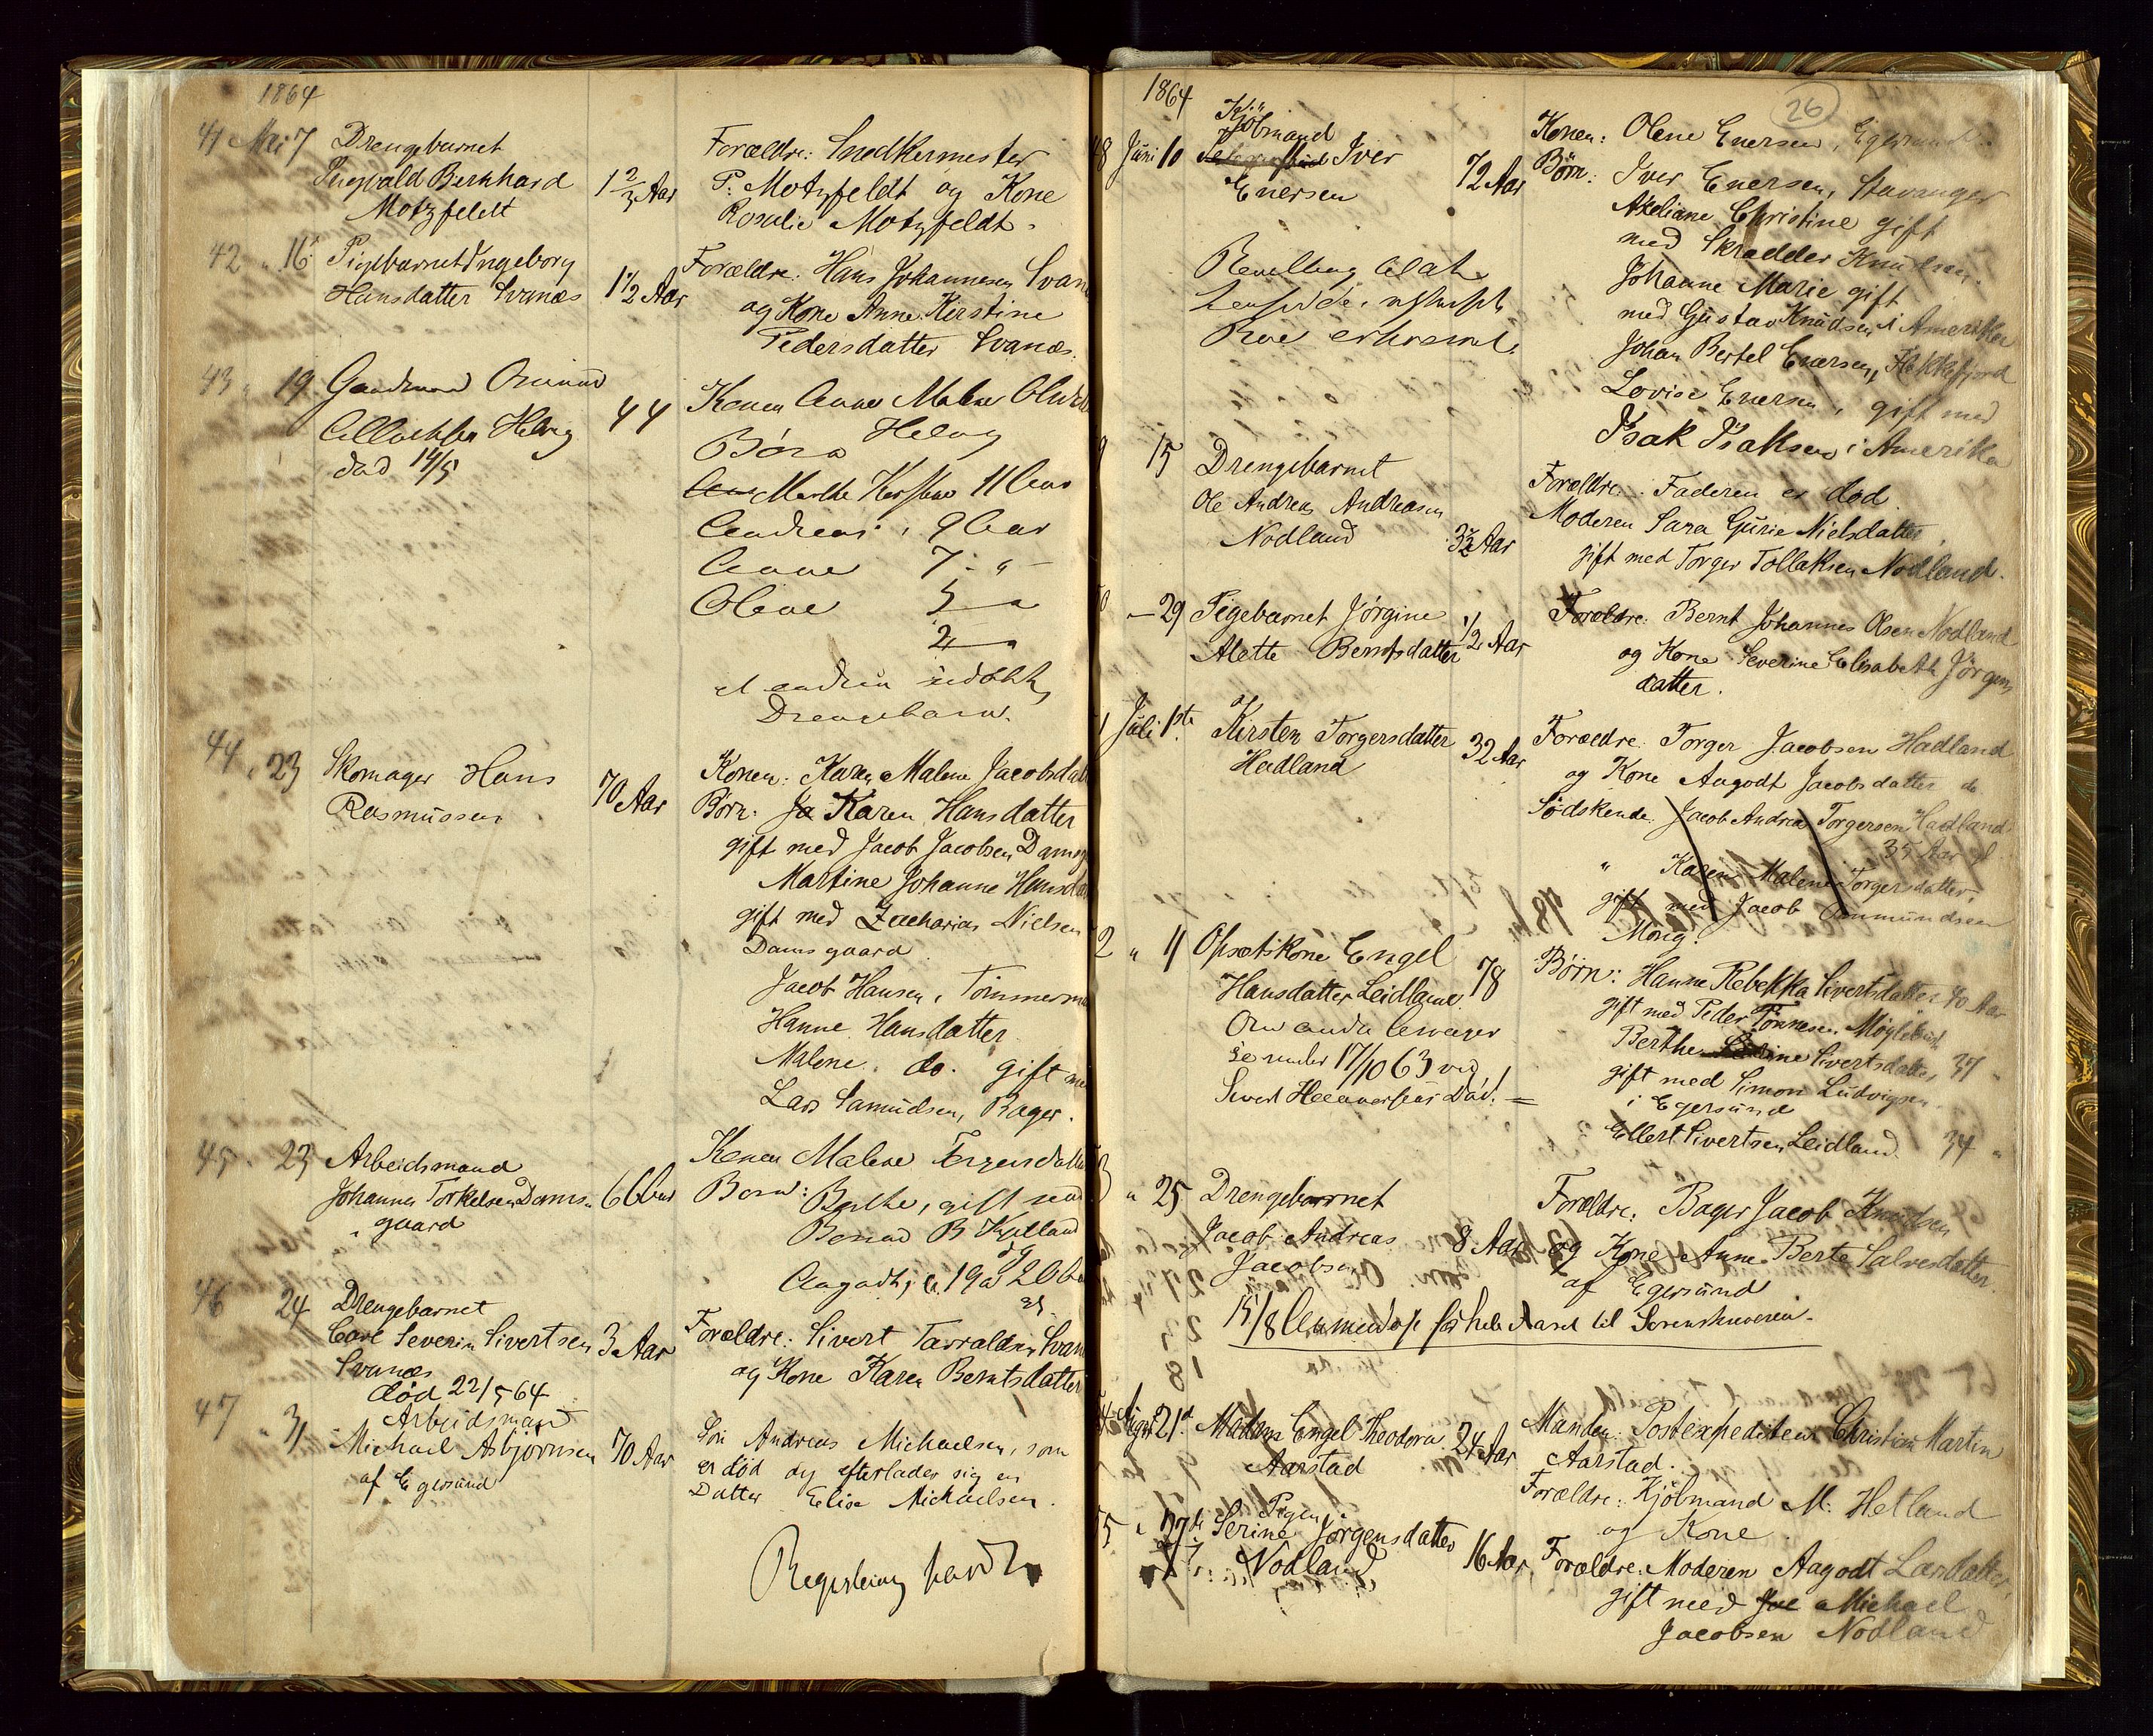 1864
41 Mai 7 Drengebarnet
Sigvald Bernhard
Motzfeldt
1 2/3 Aar
Forældre: Snedkermester
P: Motzfeldt og Kone
Rosalie Motzfeldt.
42 " 16 Pigebarnet Ingeborg
Hansdatter Svanæs
1 1/2 Aar
Forældre: Hans Johannesen Svan
og Kone Anne Kirstine
Pedersdatter Svanæs.
43 " 19 Gaardmand
Helvig
død 14/5
44
Konen Anne Malene
Helvig
Børn
Marthe Kirstine 11 Aar
Andreas, 9 Aar
Anne 7 - "
Olene 5 - "
2 - "
et endnu udøbt
Drengebarn.
44 " 23 Skomager Hans
Rasmussen
70 Aar
Konen: Karen Malene Jacobsdat
Børn: Ja Karen Hansdatter
gift med Jacob Jacobsen Damsg
Martine Johanne Hansda
gift med Zacharias Nielsen
Damsgaard.
Jacob Hansen, Tømmerma
Hanne Hansdatter
Malene. do. gift me
Lars Samudsen, Bager.
45 " 23 Arbeidsmand
Johannes Torkelsen Dams
gaard
66 Aar
Konen Malene
Børn: Berthe, gift med
B Kjelland
og
Aagodt, 19 a 20 Aa
46 24 Drengebarnet
Carl Severin Sivertsen
Svanæs
død 22/5 64
3 Aar
Forældre: Sivert Tarraldsen Svan
og Kone Karen Berntsdatter
47 " 31 Arbeidsmand
Michael Asbjørnsen
af Egersund
70 Aar
Søn Andreas Michaelsen, som
er død og efterlader sig en
Datter Elise Michaelsen.
1864
26
8 Juni 10 Kjøbmand
Iver
Enersen
72 Aar
Konen: Olene Enersen, Egersund.
Børn: Iver Enersen, Stavanger
Axeliane Christine gift
med Skrædder Knudsen.
Johanne Marie gift
med Gustav Knudsen i Amerika
Johan Bertel Enersen, Flekkefjord
Lovise Enersen, gift med
Isak Isaksen i Amerika
9 15 Drengebarnet
Ole Andreas Andreasen
Nodland
3 1/2 Aar
Forældre: Faderen er død.
Moderen Sara Gurie Nielsdatter,
gift med Torger Tollaksen Nodland.
0 — 29 Pigebarnet Jørgine
Alette Berntsdatter
1/2 Aar
Forældre: Bernt Johannes Olsen Nodland
og Kone Severine Elisabeth Jørgens
datter.
1 Juli 1ste Kirsten Torgersdatter
Hadland
32 Aar
Forældre: Torger Jacobsen Hadland
og Kone Aagodt Jacobsdatter do
Sødskende: Jacob Andreas Torgersen Hadland
35 Aar gl
" Karen Malene Torgersdatter,
gift med Jacob Ommundsen
Mong.
2 " 11 Opsætskone Engel
Hansdatter Leidland
78
se under 17/10 63 ved
død.
Børn: Hanne Rebekka Sivertsdatter 40 Aar
gift med Peder Tønnesen Møglebust
Berthe Sivertsdatter 37 "
gift med Simon Ludvigsen
i Egersund
Ellert Sivertsen Leidland. 34 "
3 " 25 Drengebarnet
Jacob Andreas
Jacobsen
8 Aar
Forældre: Bager Jacob Knudsen
og Kone Anne Berte Salvesdatter
af Egersund
15/8 for hele Aaret til Sorenskriveren.
4 August 21de Madam Engel Theodora
Aarstad
24 Aar
Manden Postexpeditør Christian Martin
Aarstad.
Forældre: Kjøbmand M. Hetland
og Kone
5 " 27de Pigen
Serine Jørgensdatter
Nodland
16 Aar
Forældre: Moderen Aagodt Larsdatter,
gift med Michael
Jacobsen Nodland